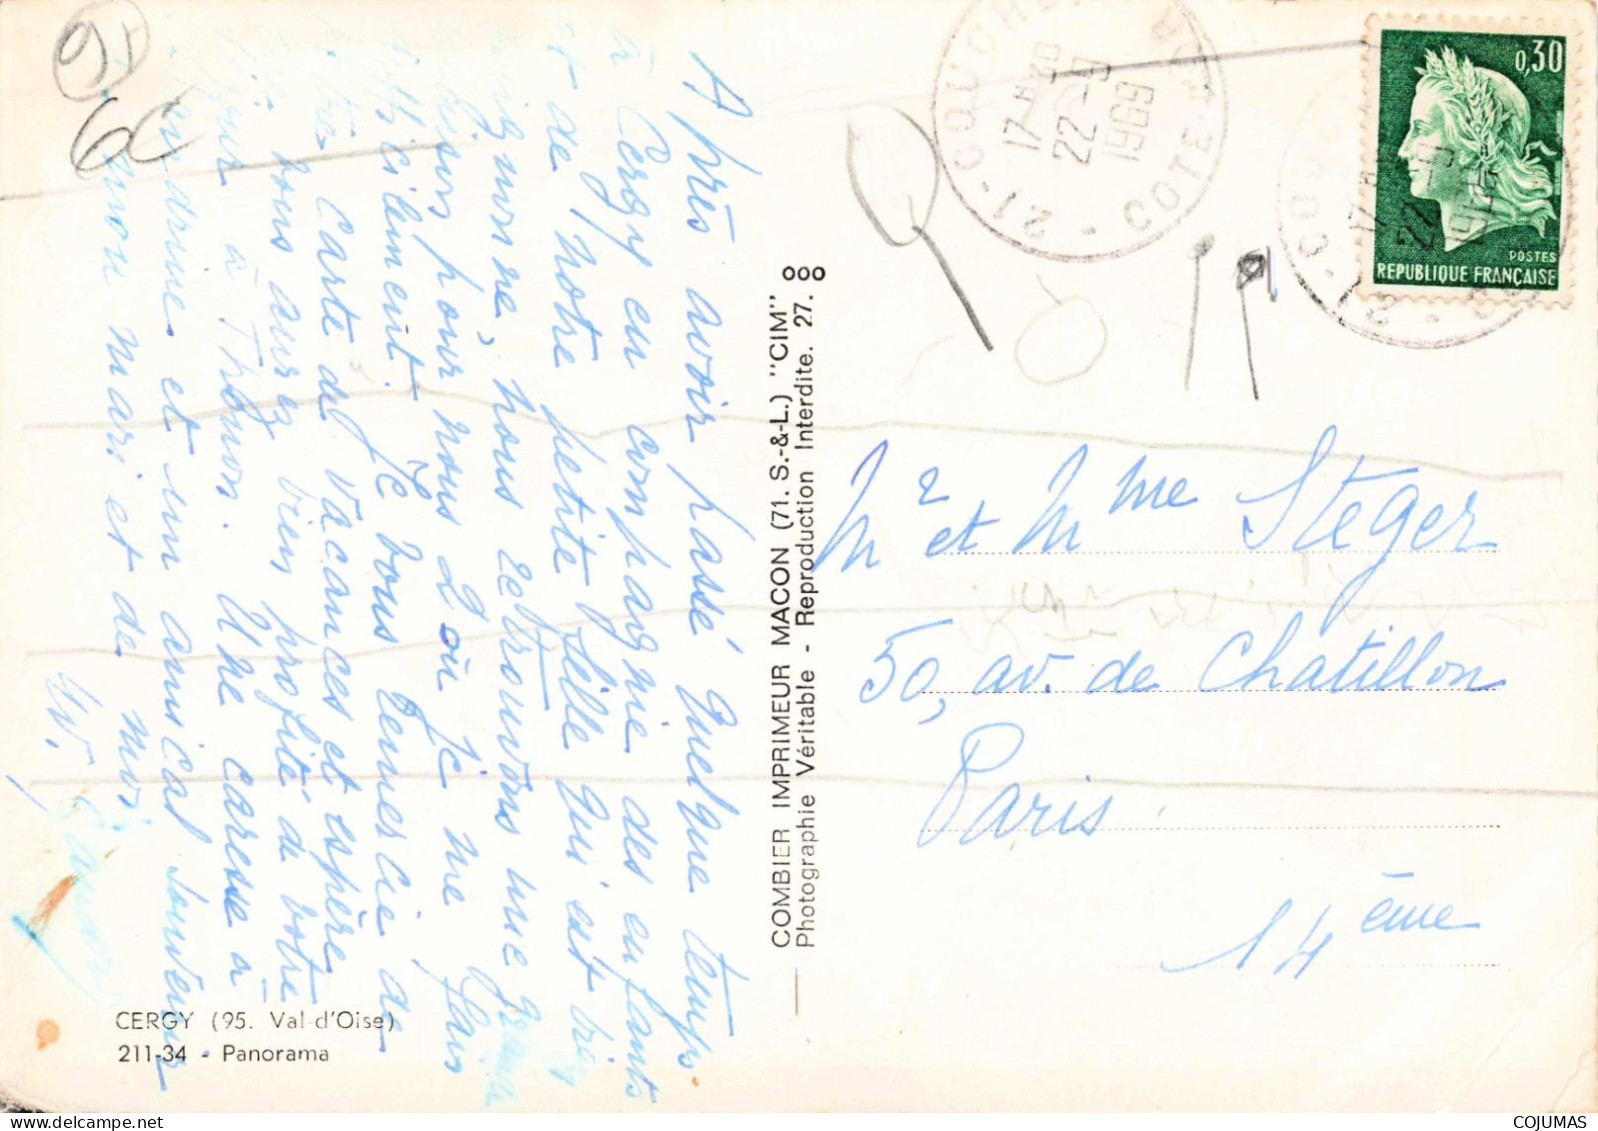 Après avoir passé quelque temps
à Cergy en compagnie des enfants
et de notre petite fille qui est très
mignonne, nous retrouvons une grande
maison pour nous 2 où je me plais
difficilement. Je vous remercie de
votre carte de vacances et espère
que vous aurez bien profité de votre
séjour à Thônon. Une caresse à
et un amical souvenir
de mon mari et de moi
CERGY (95. Val-d'Oise)
211-34 - Panorama
COMBIER IMPRIMEUR MACON (71. S.-&-L.) "CIM"
Photographie Véritable - Reproduction Interdite. 27.
000
95
60
21-COUCHE
COTE-D'OR
17H30
22-9
1969
0,30
POSTES
REPUBLIQUE FRANÇAISE
Mr et Mme Steger
50, av. de Chatillon
Paris
14ème
COJUMAS